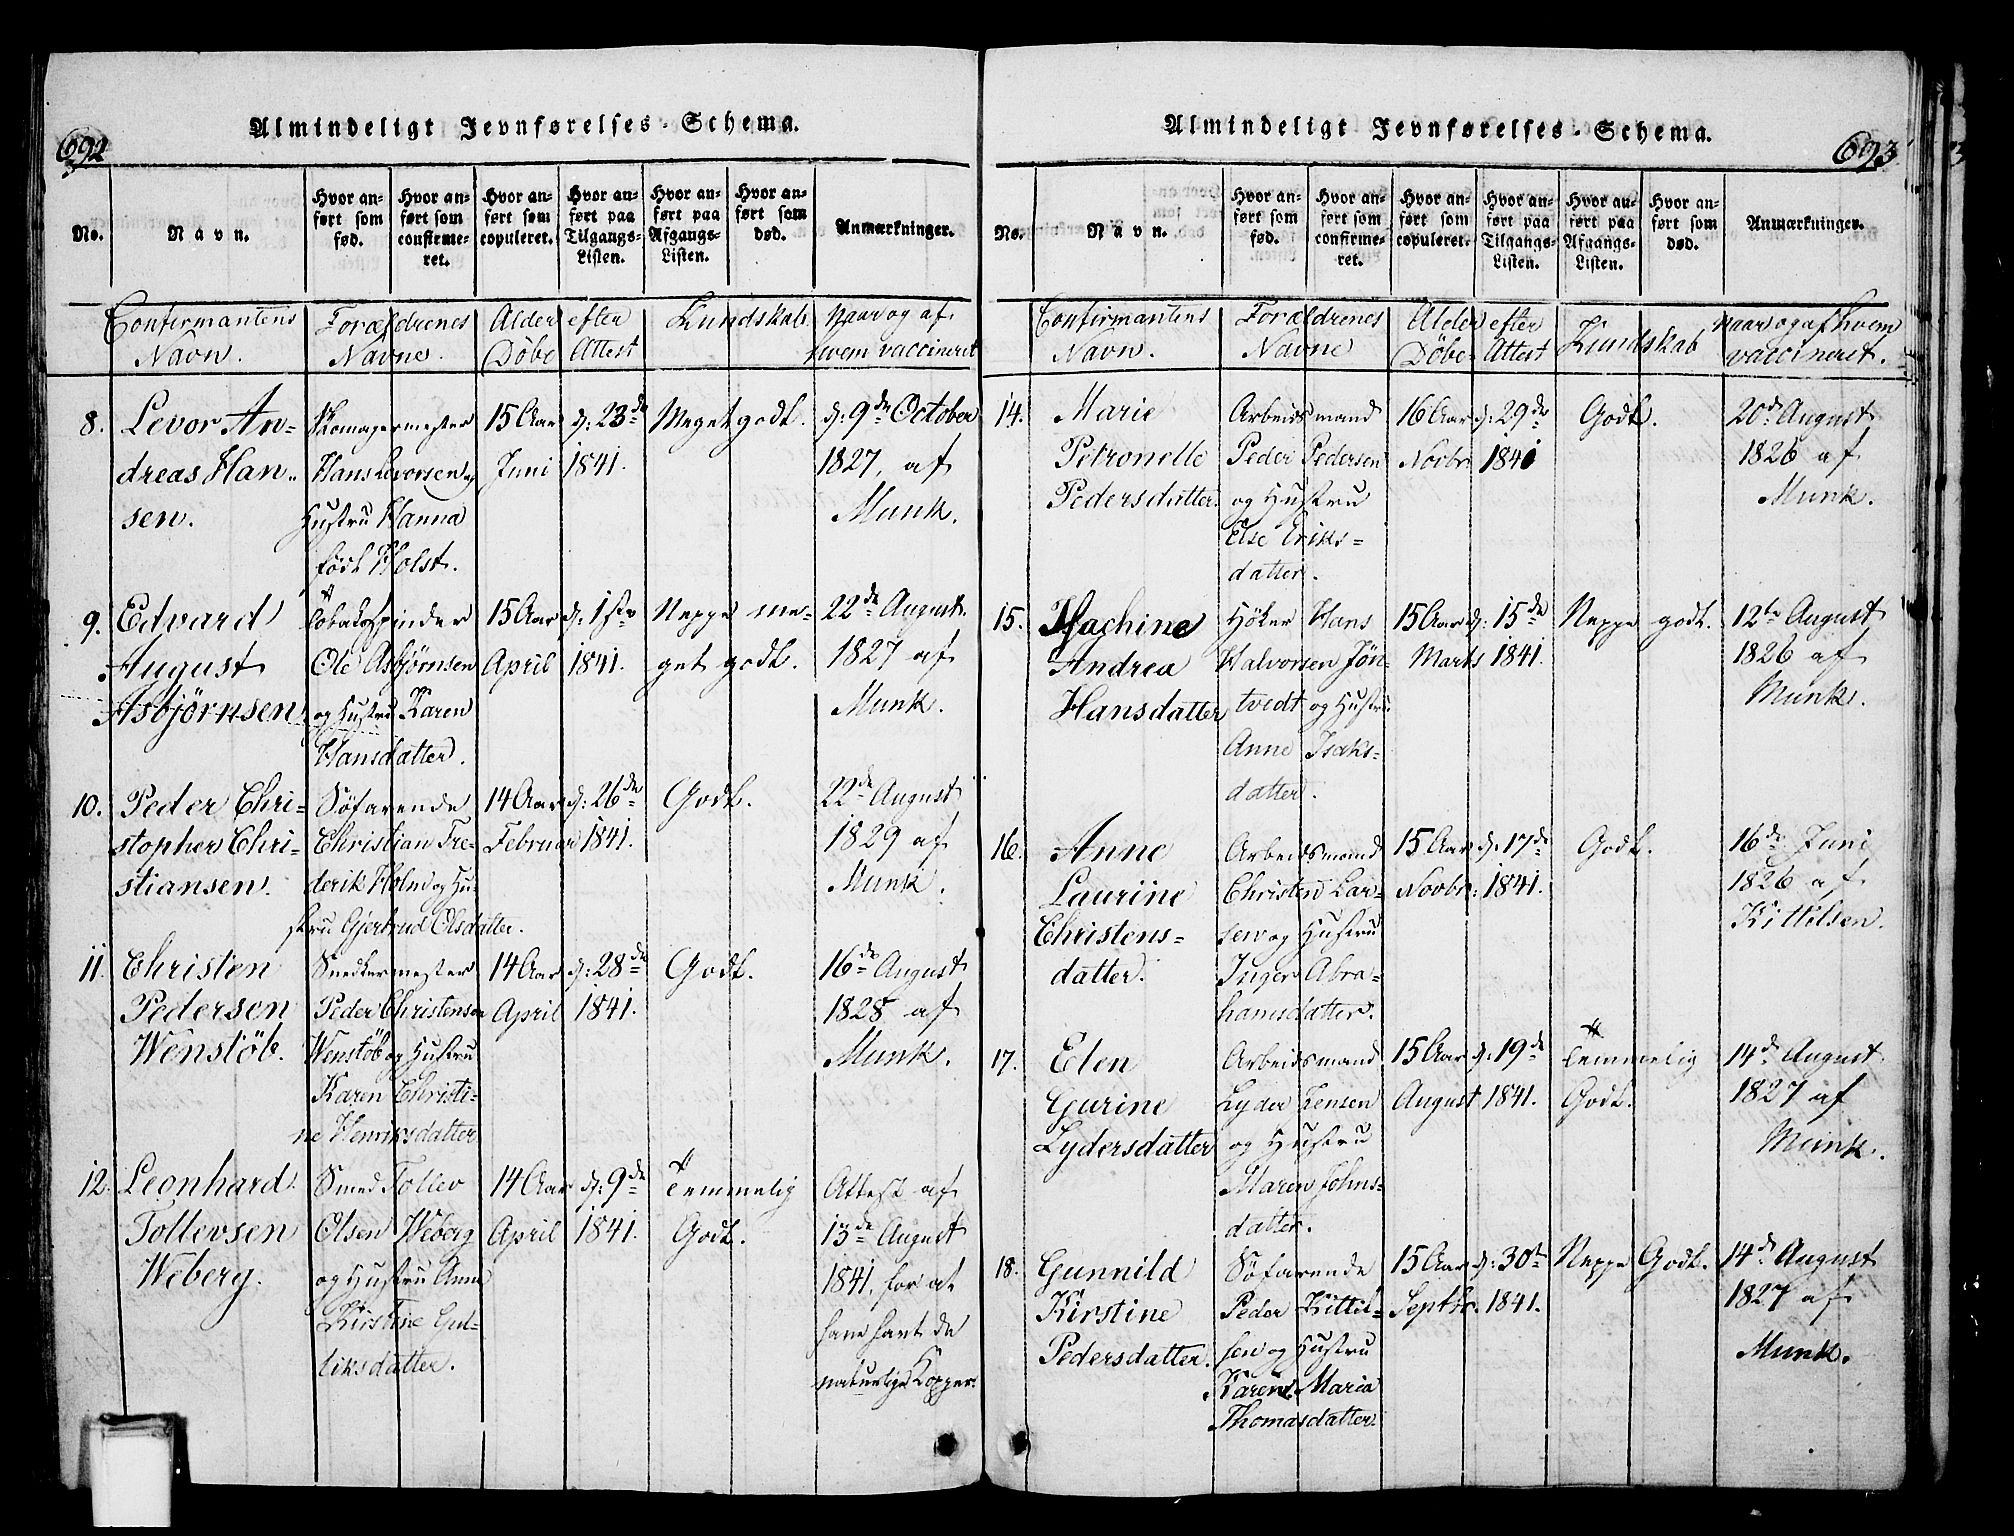 692
Almindeligt Jevnførelses-Schema.
No.
Navn.
Hvor anført som fød.
Hvor anført som confirmeret.
Hvor anført som copuleret.
Hvor anført paa Tilgangs-Listen.
Hvor anført paa Afgangs-Listen.
Hvor anført som død.
Anmærkninger.
Confirmantens Navn.
Forældrenes Navne.
Alder efter Döbe Attest
Kundskab.
Naar og af hvem vaccineret
8.
Levor An-
dreas Han-
sen.
Skomagermester
Hans Levorsen og
Hustru Hanna
föd Holst.
15 Aar d: 23de
Juni 1841.
Meget godt.
d: 9de October
1827, af
Munk.
9.
Edvard
August
Asbjørnsen
Tobakspinder
Ole Asbjørnsen
og Hustru Karen
Hansdatter.
15 Aar d: 1ste
April 1841.
Neppe me-
get godt.
22de August
1827 af
Munk.
10.
Peder Chri-
stopher Chri-
stiansen.
Söfarende
Christian Fre-
derik Holm og Hu-
stru Gjertrud Olsdatter.
14 Aar d: 26de
Februar 1841.
Godt.
22de August
1829 af
Munk.
11.
Christen
Pedersen
Wenstöb.
Snedkermester
Peder Christensen
Wenstöb og Hustru
Karen Christi-
ne Henriksdatter
14 Aar d: 28de
April 1841.
Godt.
16de August
1828 af
Munk.
12.
Leonhard
Tollevsen
Weberg.
Smed Tollev
Olsen Weberg
og Hustru Anne
Kirstine Gul-
liksdatter.
14 Aar d: 9de
April 1841.
Temmelig
Godt.
Attest af
13de August
1841, for at
have havt de
naturlige Kopper.
693
Almindeligt Jevnførelses-Schema.
No.
Navn.
Hvor anført som fød.
Hvor anført som confirmeret.
Hvor anført som copuleret.
Hvor anført paa Tilgangs-Listen.
Hvor anført paa Afgangs-Listen.
Hvor anført som død.
Anmærkninger.
Confirmantens Navn.
Forældrenes Navne
Alder efter Döbe Attest
Kundskab
naar og af hvem vaccineret.
14.
Marie
Petronelle
Pedersdatter.
Arbeidsmand
Peder Pedersen
og Hustru
Else Eriks-
datter.
16 Aar d: 29de
Novbr. 1840
Godt.
20de August
1826 af
Munk.
15.
Hachine
Andrea
Hansdatter
Höker Hans
Halvorsen Jön-
tvedt og Hustru
Anne Isaks-
datter.
15 Aar d: 15de
Marts 1841.
Neppe godt.
12te August
1826 af
Munk.
16.
Anne
Laurine
Christens-
datter.
Arbeidsmand
Christen Lar-
sen og Hustru
Inger Abra-
hamsdatter.
15 Aar d: 17de
Novbr: 1841.
Godt.
16de Juni
1826 af
Kittilsen.
17.
Elen
Gurine
Lydersdatter
Arbeidsmand
Lyder Jensen
og Hustru
Maren Johns-
datter.
15 Aar d: 19de
August 1841.
Temmelig
Godt.
14de August
1827 af
Munk.
18.
Gunnild
Kirstine
Pedersdatter.
Söfarende
Peder Kittil-
sen og Hustru
Karen Maria
Thomasdatter.
15 Aar d: 30te
Septbr. 1841.
Neppe Godt.
14de August
1827 af
Munk.